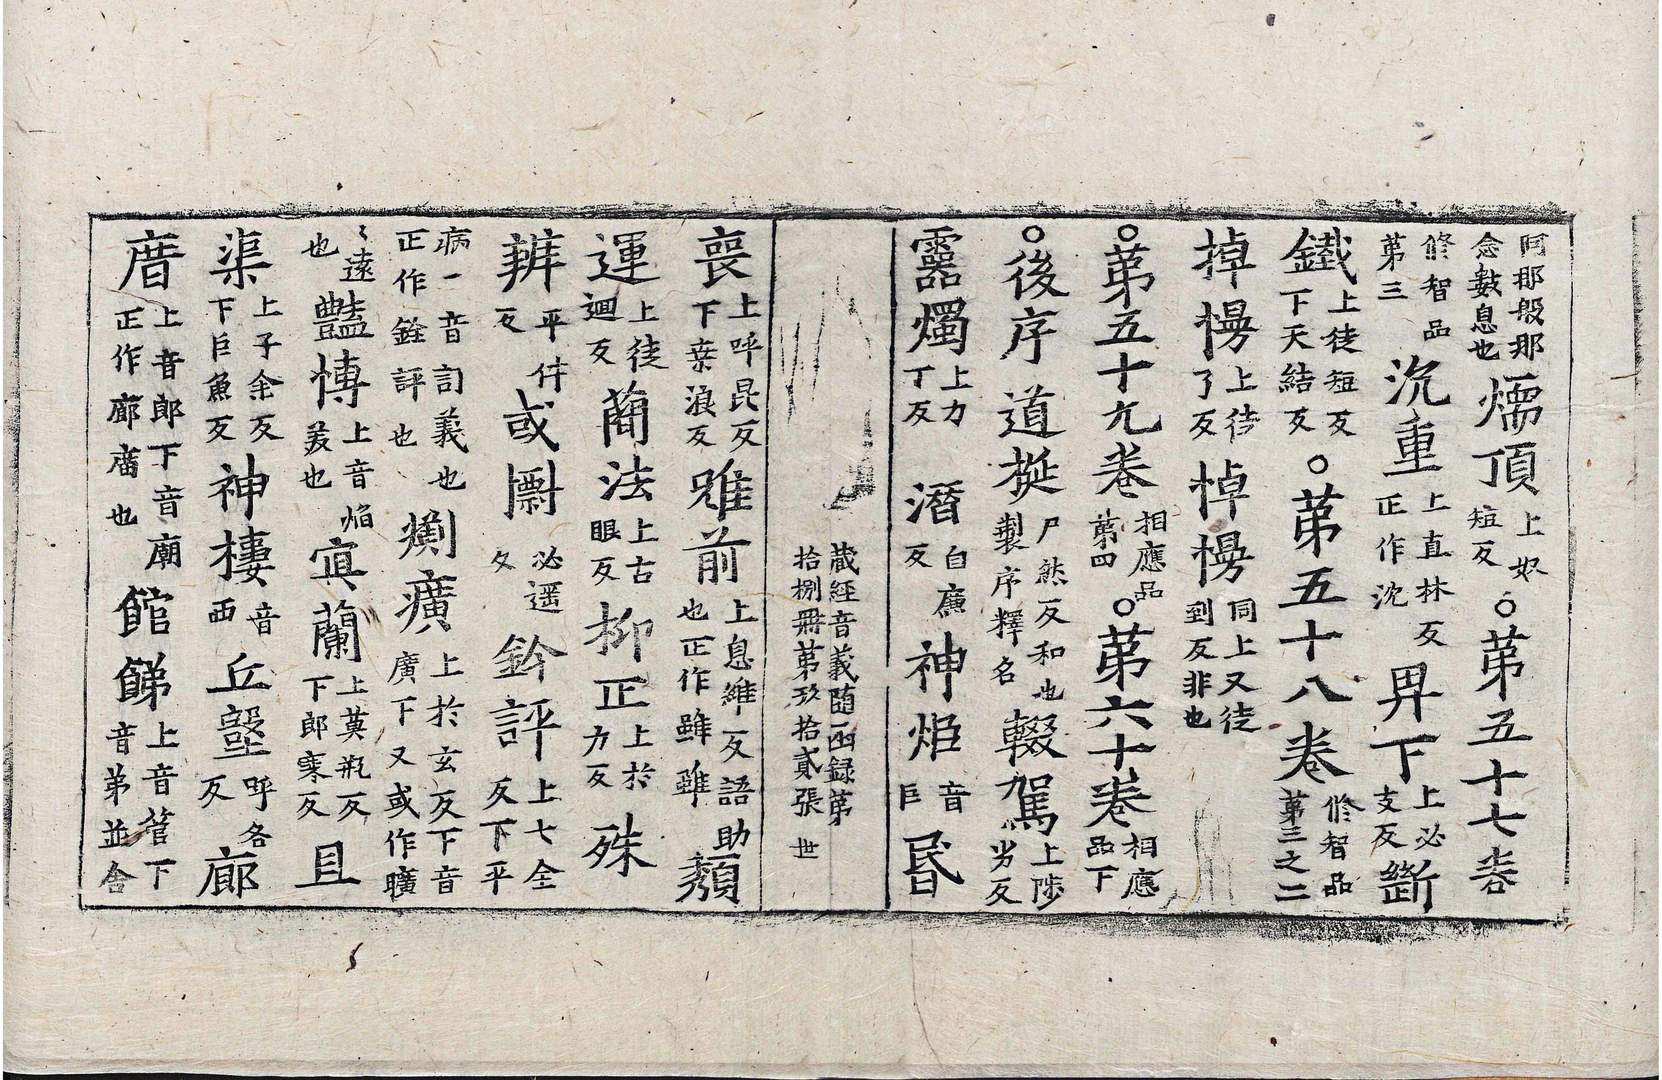 阿那般那念數息也㬉頂上奴短反○第五十七卷
修智品第三沉重上直林反正作沈畀下上必支反斷
鐵上徒短反下天結反○第五十八卷修智品第三之二
掉慢上徒了反悼慢同上又徒到反非也
○第五十九卷相應品第四○第六十卷相應品下
○後序道挻尸然反和也製序釋名輟駕上陟劣反
靈燭上力丁反潛自廉反神炬音巨昬
藏經音義随函録第拾捌冊第玖拾貳張世
喪上呼昆反下桒浪反雖前上息維反語助也正作雖雖頽
運上徒迴反蕳法上古眼反抑正上於力反殊
辨平件反或𦋺必遥反鈐評上七全反下平
病一音訂義也正作銓評也㓩廣上於玄反下音廣下又或作曠
〻遠也豔博上音焰美也寘蘭上莫瓶反下郎寒反且
渠上子余反下巨魚反神棲音西丘壑呼各反廊
庴上音郎下音廟正作廊庿也館𩜙上音管下音弟並舎